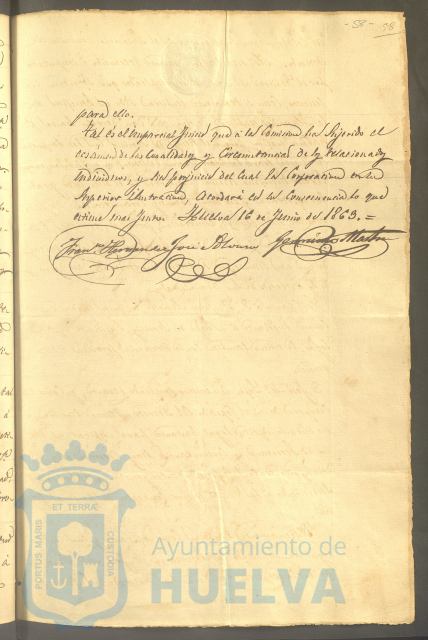 - 58 -
58
para ello.
Tal es el imparcial juicio que a la Comision ha sujerido el
ecsámen de las cualidades y circunstancias de los relacionados
individuos, y sin perjuicio del cual la Corporacion en su
superior ilustracion, acordará en su consecuencia lo que
estime mas justo. Huelva 16 de Junio de 1863. =
Fran.co Hernandez José Alvarez
ET TERRA
PORTUS MARIS
CUSTODIA
Ayuntamiento de
HUELVA